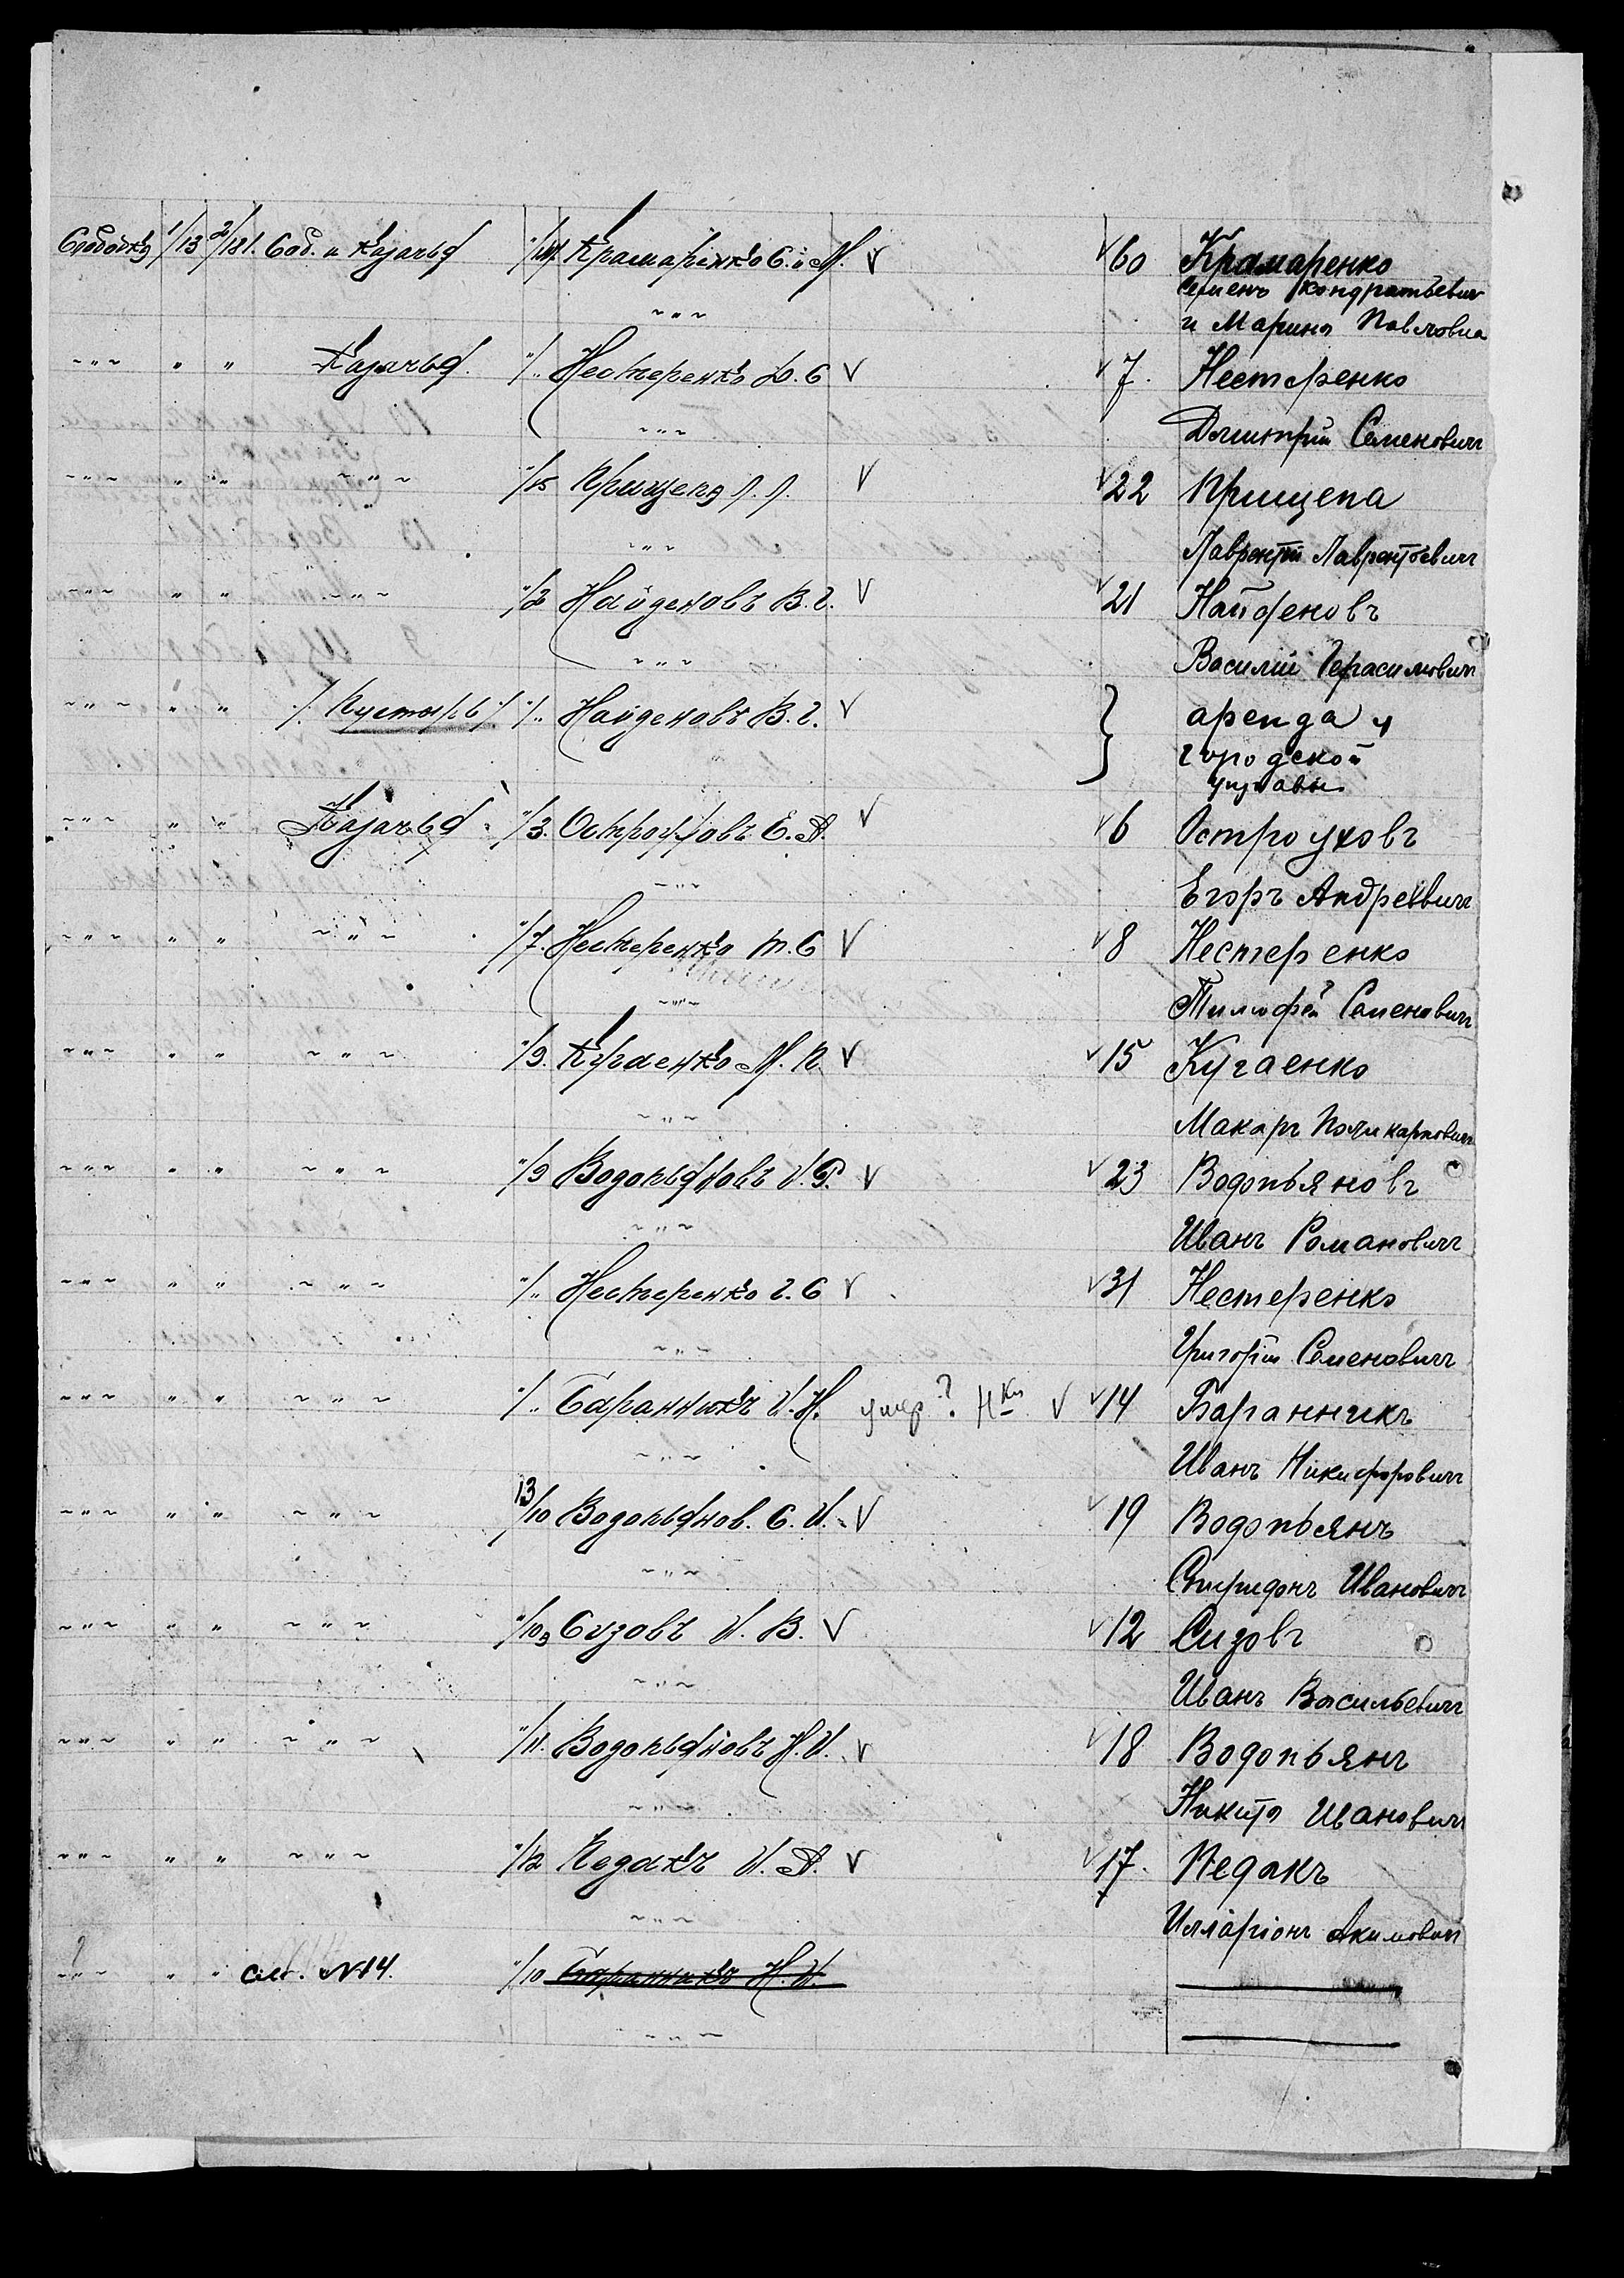 Слободка 1/13 2/181. Сад. и Казачья "/14. Крамаренко С. и М. √ √ 60 Крамаренко
Семенъ Кондратьевич
~ " ~ и Марина Павловна
~ " ~ " " Казачья. "/" Нестеренко Д. С √ √ 7. Нестеренко
~ " ~ Дмитрій Семеновичъ
~ " ~ " " ~ " ~ "/15 Прищепа Л. Л. √ √ 22 Прищепа
~ " ~ Лаврентій Лаврентьевичъ
~ " ~ " " ~ " ~ "/2 Найденовъ В. Г. √ √ 21 Найденовъ
~ " ~ Василій Герасимович
~ " ~ " " /. Пустырь / "/" Найденовъ В. Г. √ } аренда у
городской
управы
~ " ~ " " Казачья "/3. Остроуховъ Е. А. √ √ 6 Остроуховъ
~ " ~ Егоръ Андреевичъ
~ " ~ " " ~ " ~ "/7. Нестеренко Т. С √ √ 8 Нестеренко
~ " ~ Тимофей Семеновичъ
~ " ~ " " ~ " ~ "/9. Кугаенко М. П. √ √ 15 Кугаенко
~ " ~ Макаръ Поликарповичъ
~ " ~ " " ~ " ~ "/9 Водопьяновъ И. Р. √ √ 23 Водопьяновъ
~ " ~ Иванъ Романовичъ
~ " ~ " " ~ " ~ "/" Нестеренко Г. С √ √ 31 Нестеренко
~ " ~ Григорій Семеновичъ
~ " ~ " " ~ " ~ "/" Баранникъ И. Н. умер? Нки √ √ 14 Баранникъ
~ " ~ Иванъ Никифоровичъ
~ " ~ " " ~ " ~ 13/10 Водопьянов. С. И. √ √ 19 Водопьянъ
~ " ~ Спиридонъ Ивановичъ
~ " ~ " " ~ " ~ "/10а Сизовъ И. В. √ √ 12 Сизовъ
~ " ~ Иванъ Васильевичъ
~ " ~ " " ~ " ~ "/11. Водопьяновъ Н. И. √ √ 18 Водопьянъ
~ " ~ Никита Иванович
~ " ~ " " ~ " ~ "/12 Педакъ И. А. √ √ 17. Педакъ
~ " ~ Илларіонъ Акимович
~ " ~ " " см. № 14. "/10 Баранникъ Н. И.
~ " ~